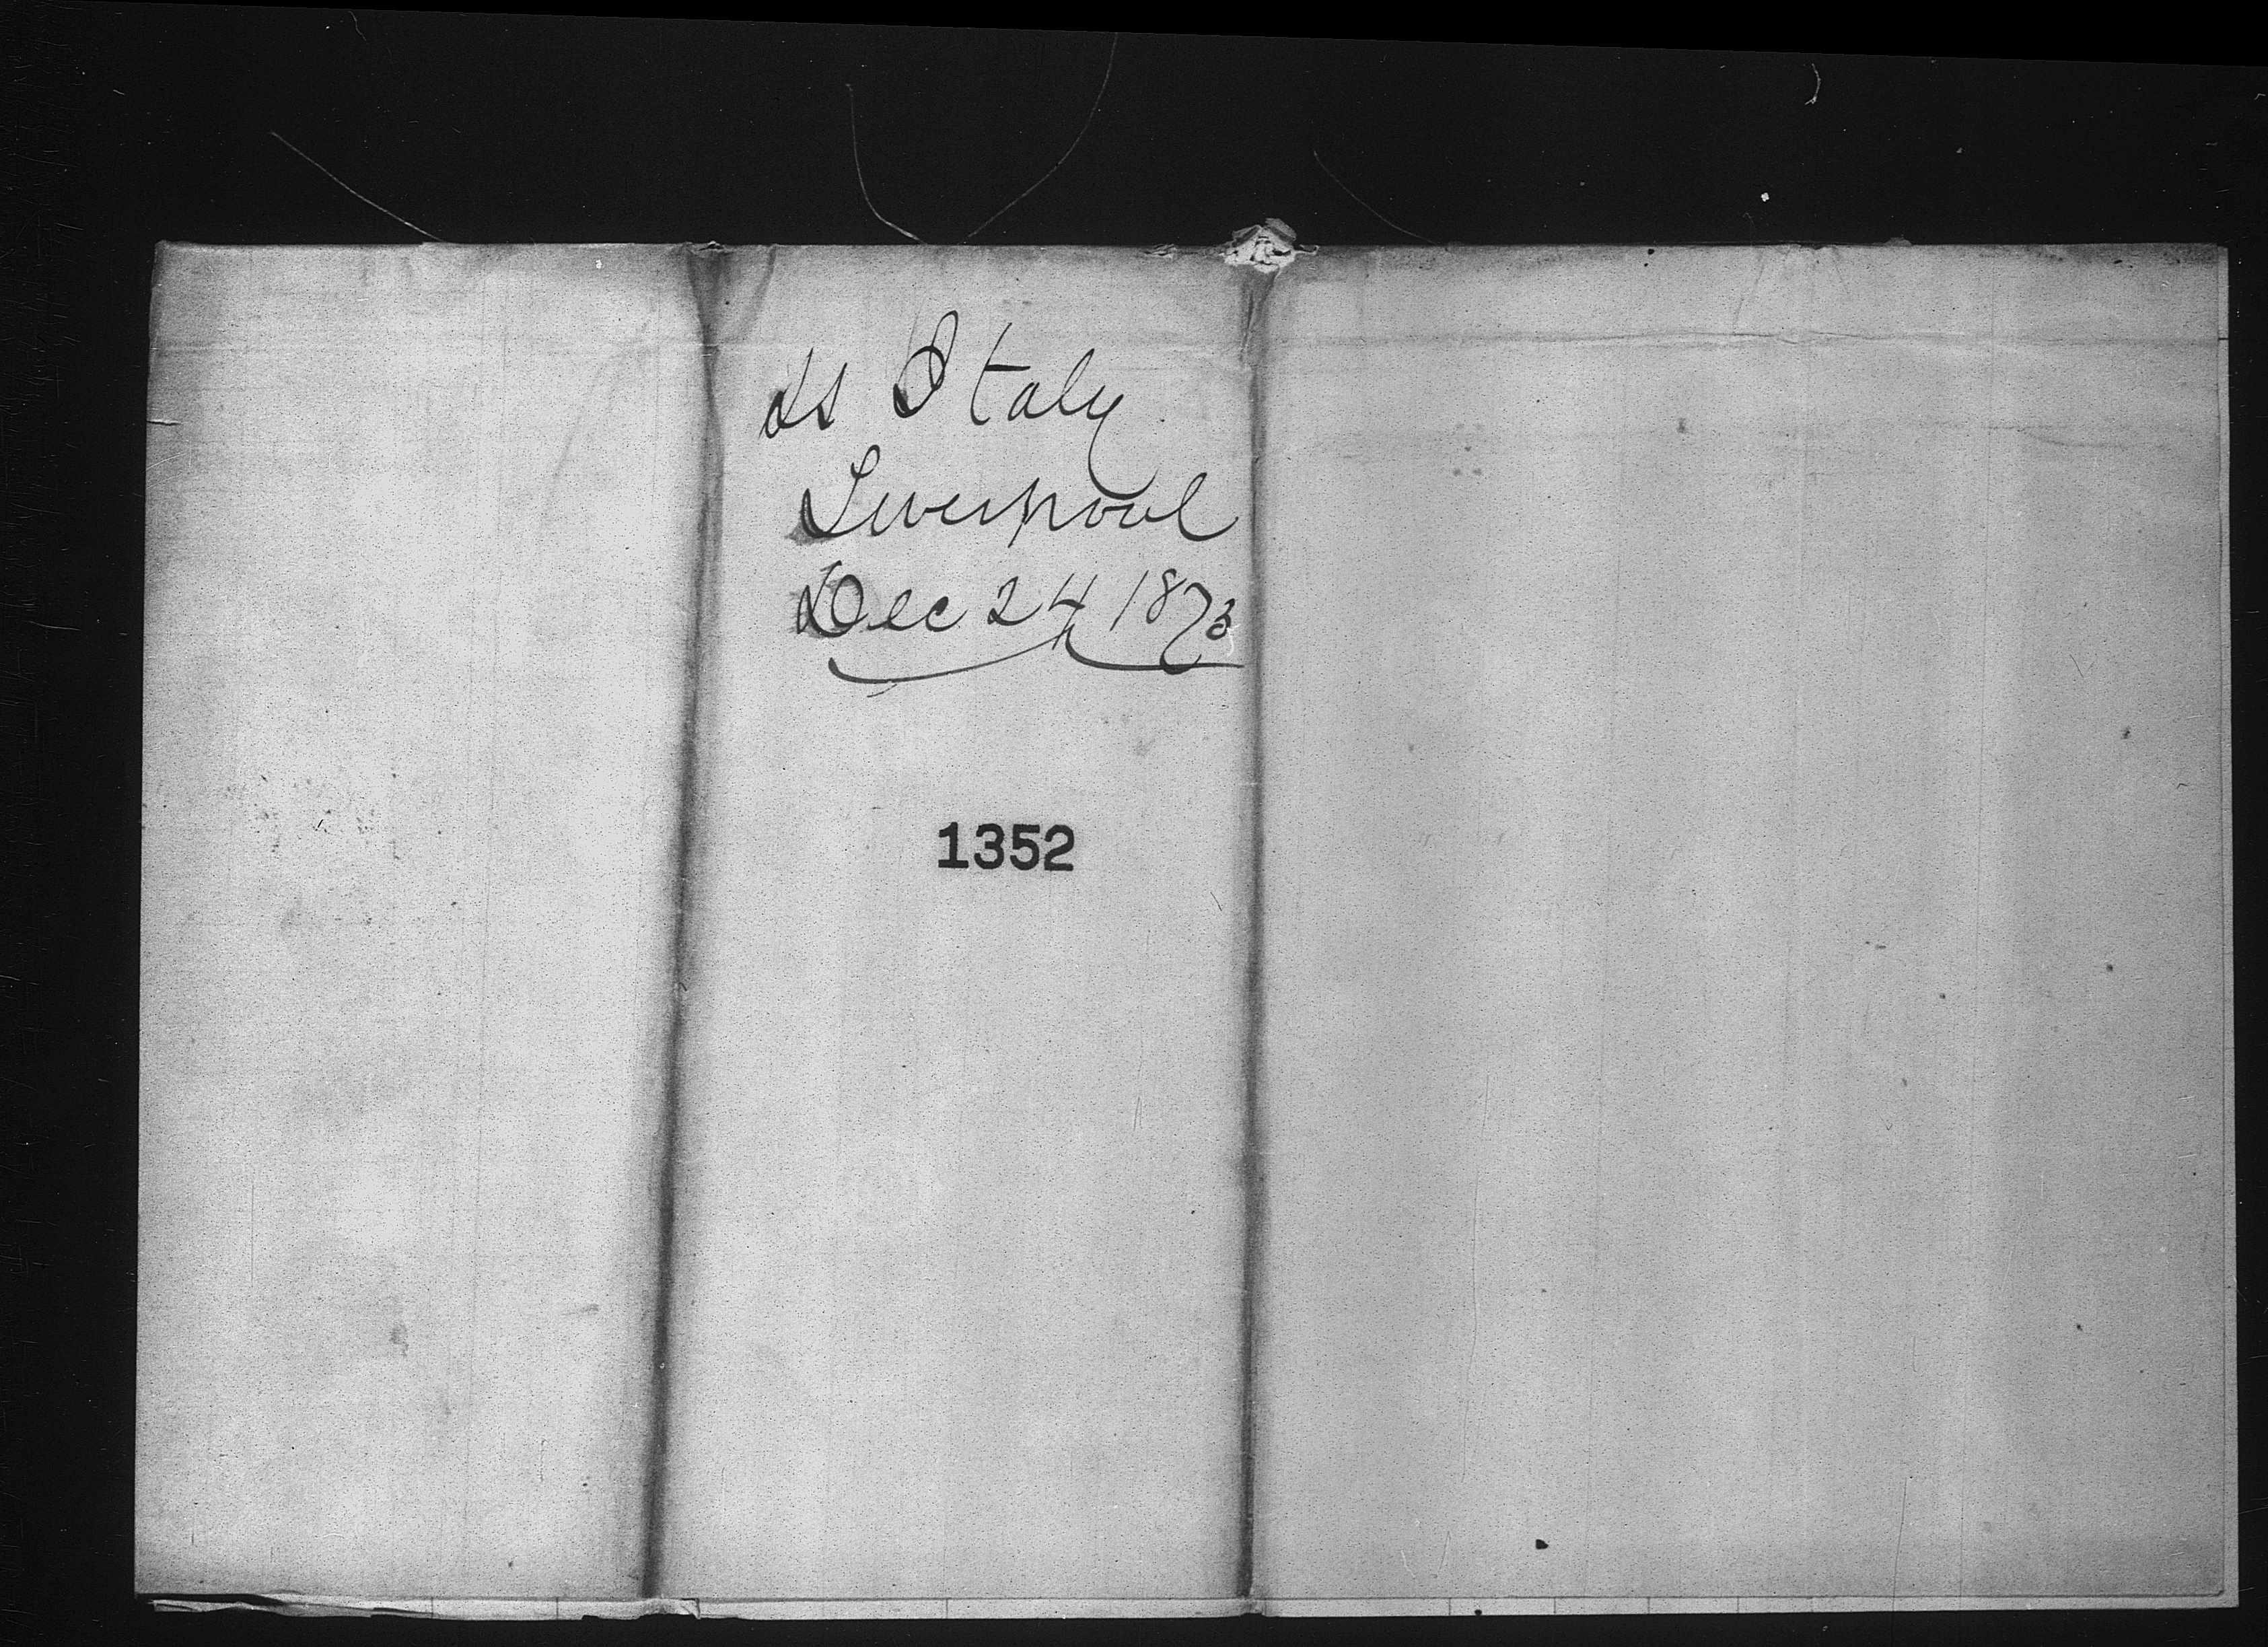 SS Italy
Liverpool
Dec 24 1873
1352